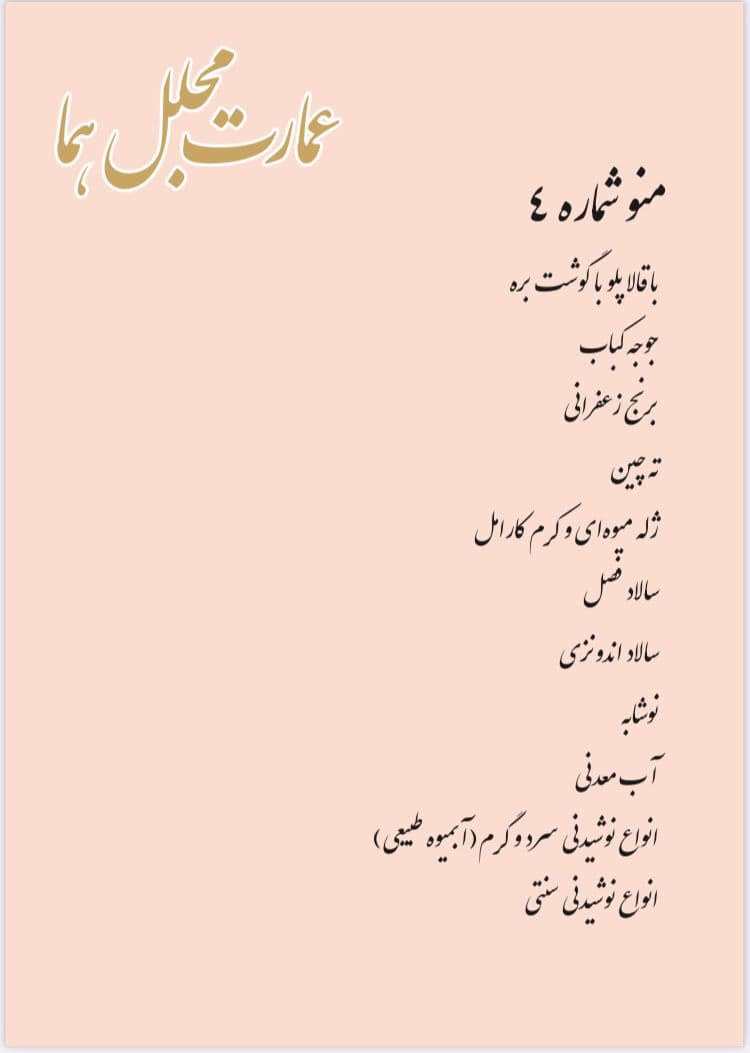 عمارت مجلل هما
منو شماره ٤
باقالا پلو با گوشت بره
جوجه کباب
برنج زعفرانی
ته چین
ژله میوه‌ای و کرم کارامل
سالاد فصل
سالاد اندونزی
نوشابه
آب معدنی
انواع نوشیدنی سرد و گرم (آبمیوه طبیعی)
انواع نوشیدنی سنتی